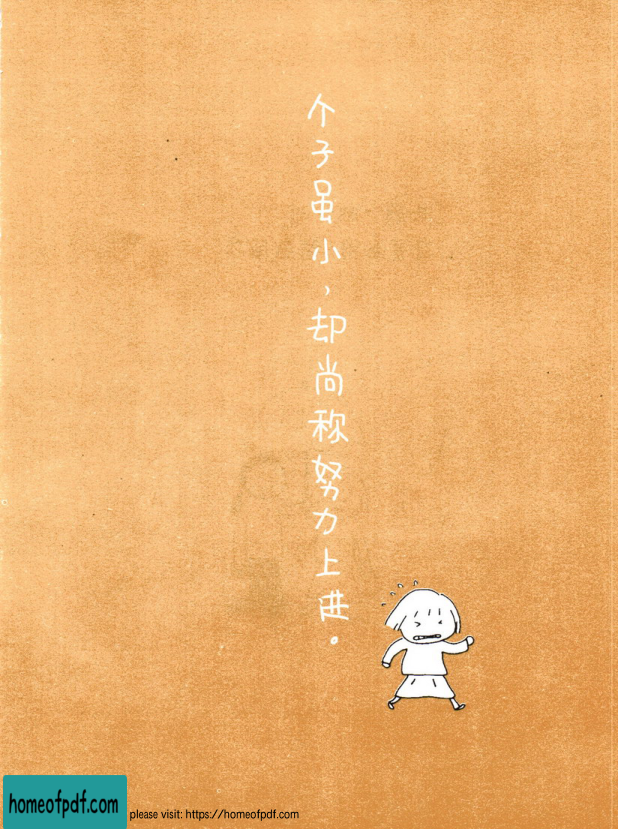 个子虽小，却尚称努力上进。
homeofpdf.com
please visit: https://homeofpdf.com